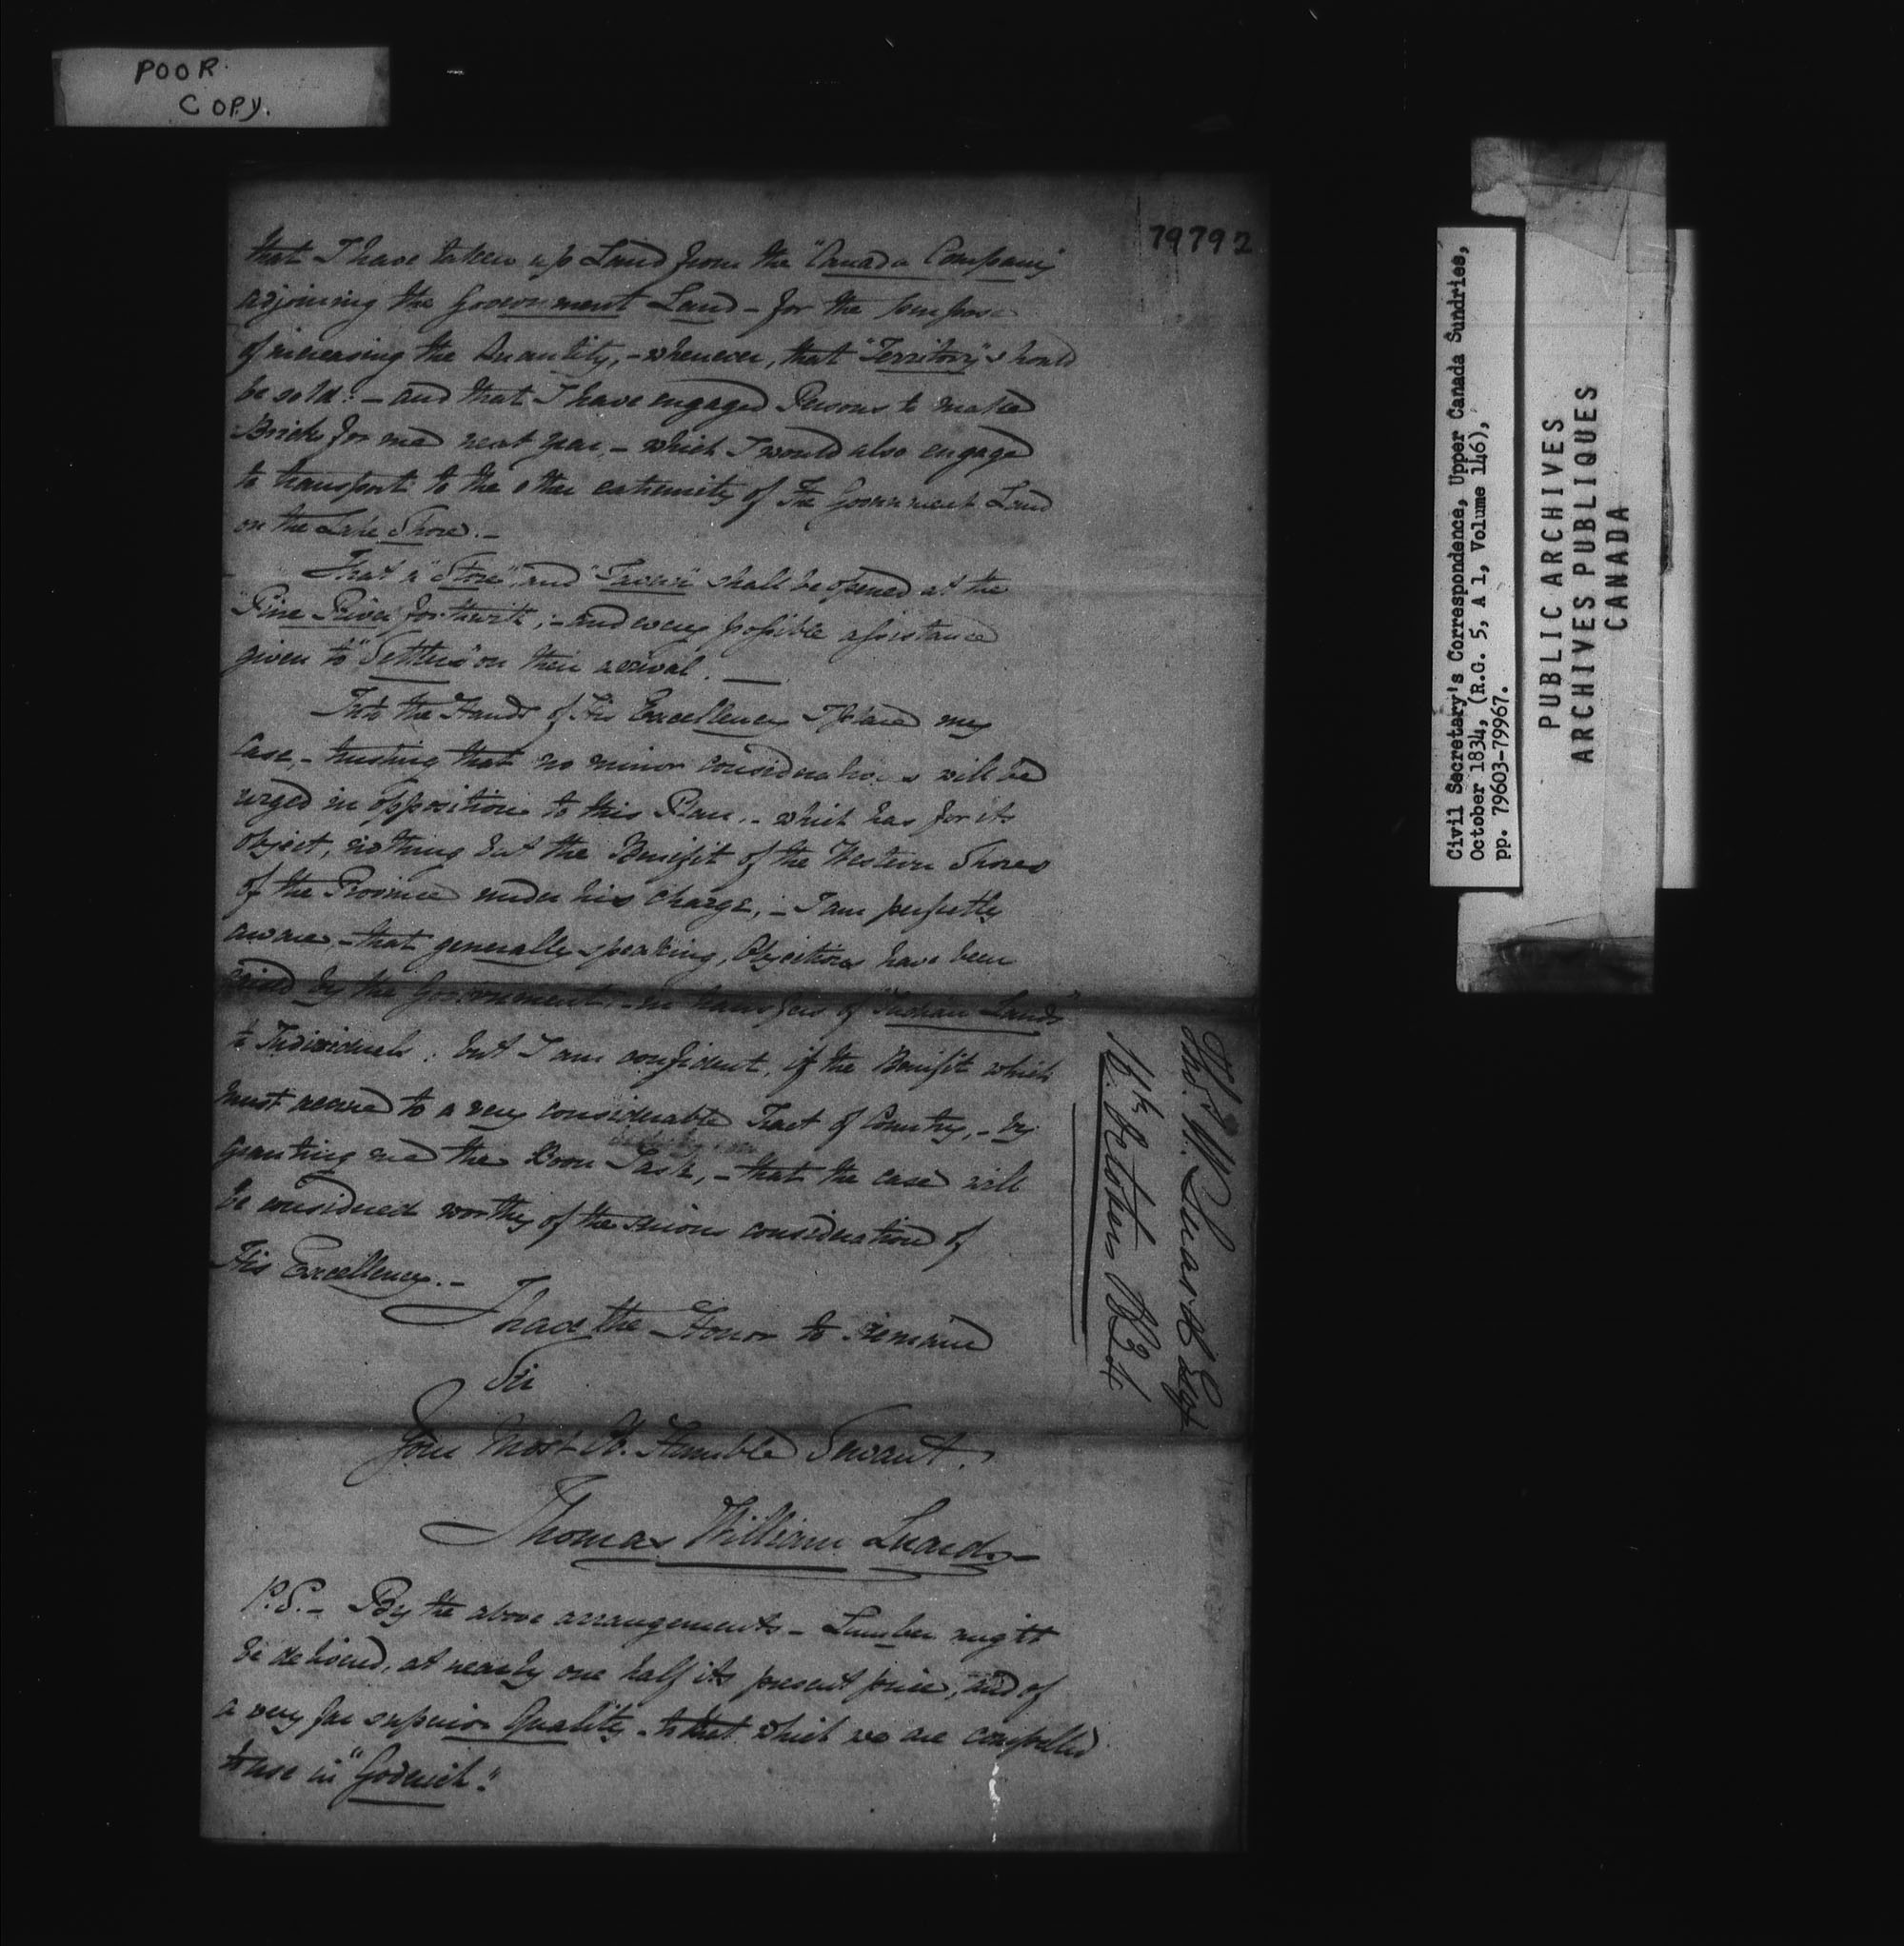 POOR
COPY.
79792
that I have taken up Land from the "Canada Company
adjoining the Government Land - for the purpose
of increasing the Quantity, - whenever, that "Territory" should
be sold: - and that I have engaged Persons to make
Brick for me next year, - which I would also engage
to transport to the other extremity of The Government Land
on the Lake Shore. -
That a "Store" and "Tavern" shall be opened at the
"Pine River forthwith; - and every possible assistance
given to "Settlers" on their arrival. —
Into the Hands of His Excellency I place my
Case, - trusting that no minor considerations will be
urged in opposition to this Plan, - which has for its
object, nothing but the Benefit of the Western Shores
of the Province under his charge; - I am perfectly
aware, - that generally speaking, Objections have been
raised by the Government, - in transfers of "Indian Lands"
to Individuals: but I am confident, if the Benefit which
must accrue to a very considerable Tract of Country, - by
granting me the Boon I ask, - that the case will
be considered worthy of the serious consideration of
His Excellency. -
I have the Honor to remain
Sir
Your Most Ob. Humble Servant.
Thomas William Luard
P.S. - By the above arrangements - Lumber might
be delivered, at nearly one half its present price, and of
a very far superior Quality - to that which we are compelled
to use in "Goderich."
Thos. W. Luard Esqr
16th October 1834
Civil Secretary's Correspondence, Upper Canada Sundries,
October 1834, (R.G. 5, A 1, Volume 146),
pp. 79603-79967.
PUBLIC ARCHIVES
ARCHIVES PUBLIQUES
CANADA